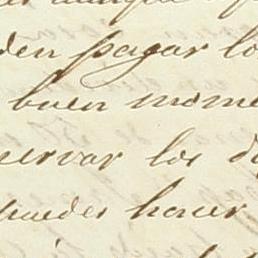 den pagar lo
buen mome
ervar los d
puedes hacer